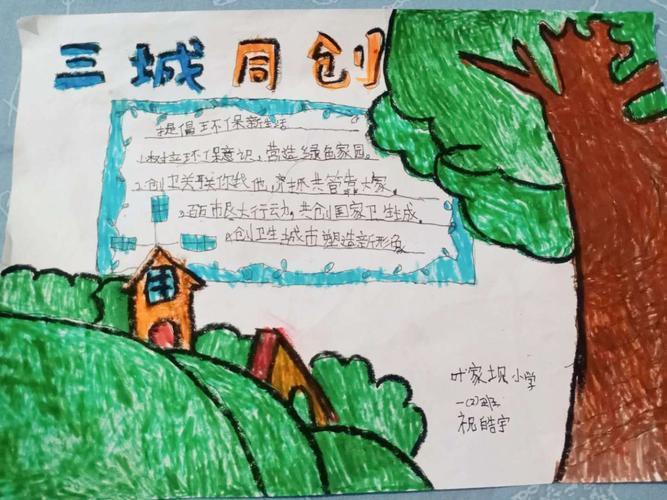 三城同创
提倡环保新生活
1.树立环保意识,营造绿色家园。
2.创卫关联你我他,
3.百万市民大行动,共创国家卫生城。
4.创卫生城市塑造新形象
叶家坝小学
一(2)班
祝皓宇